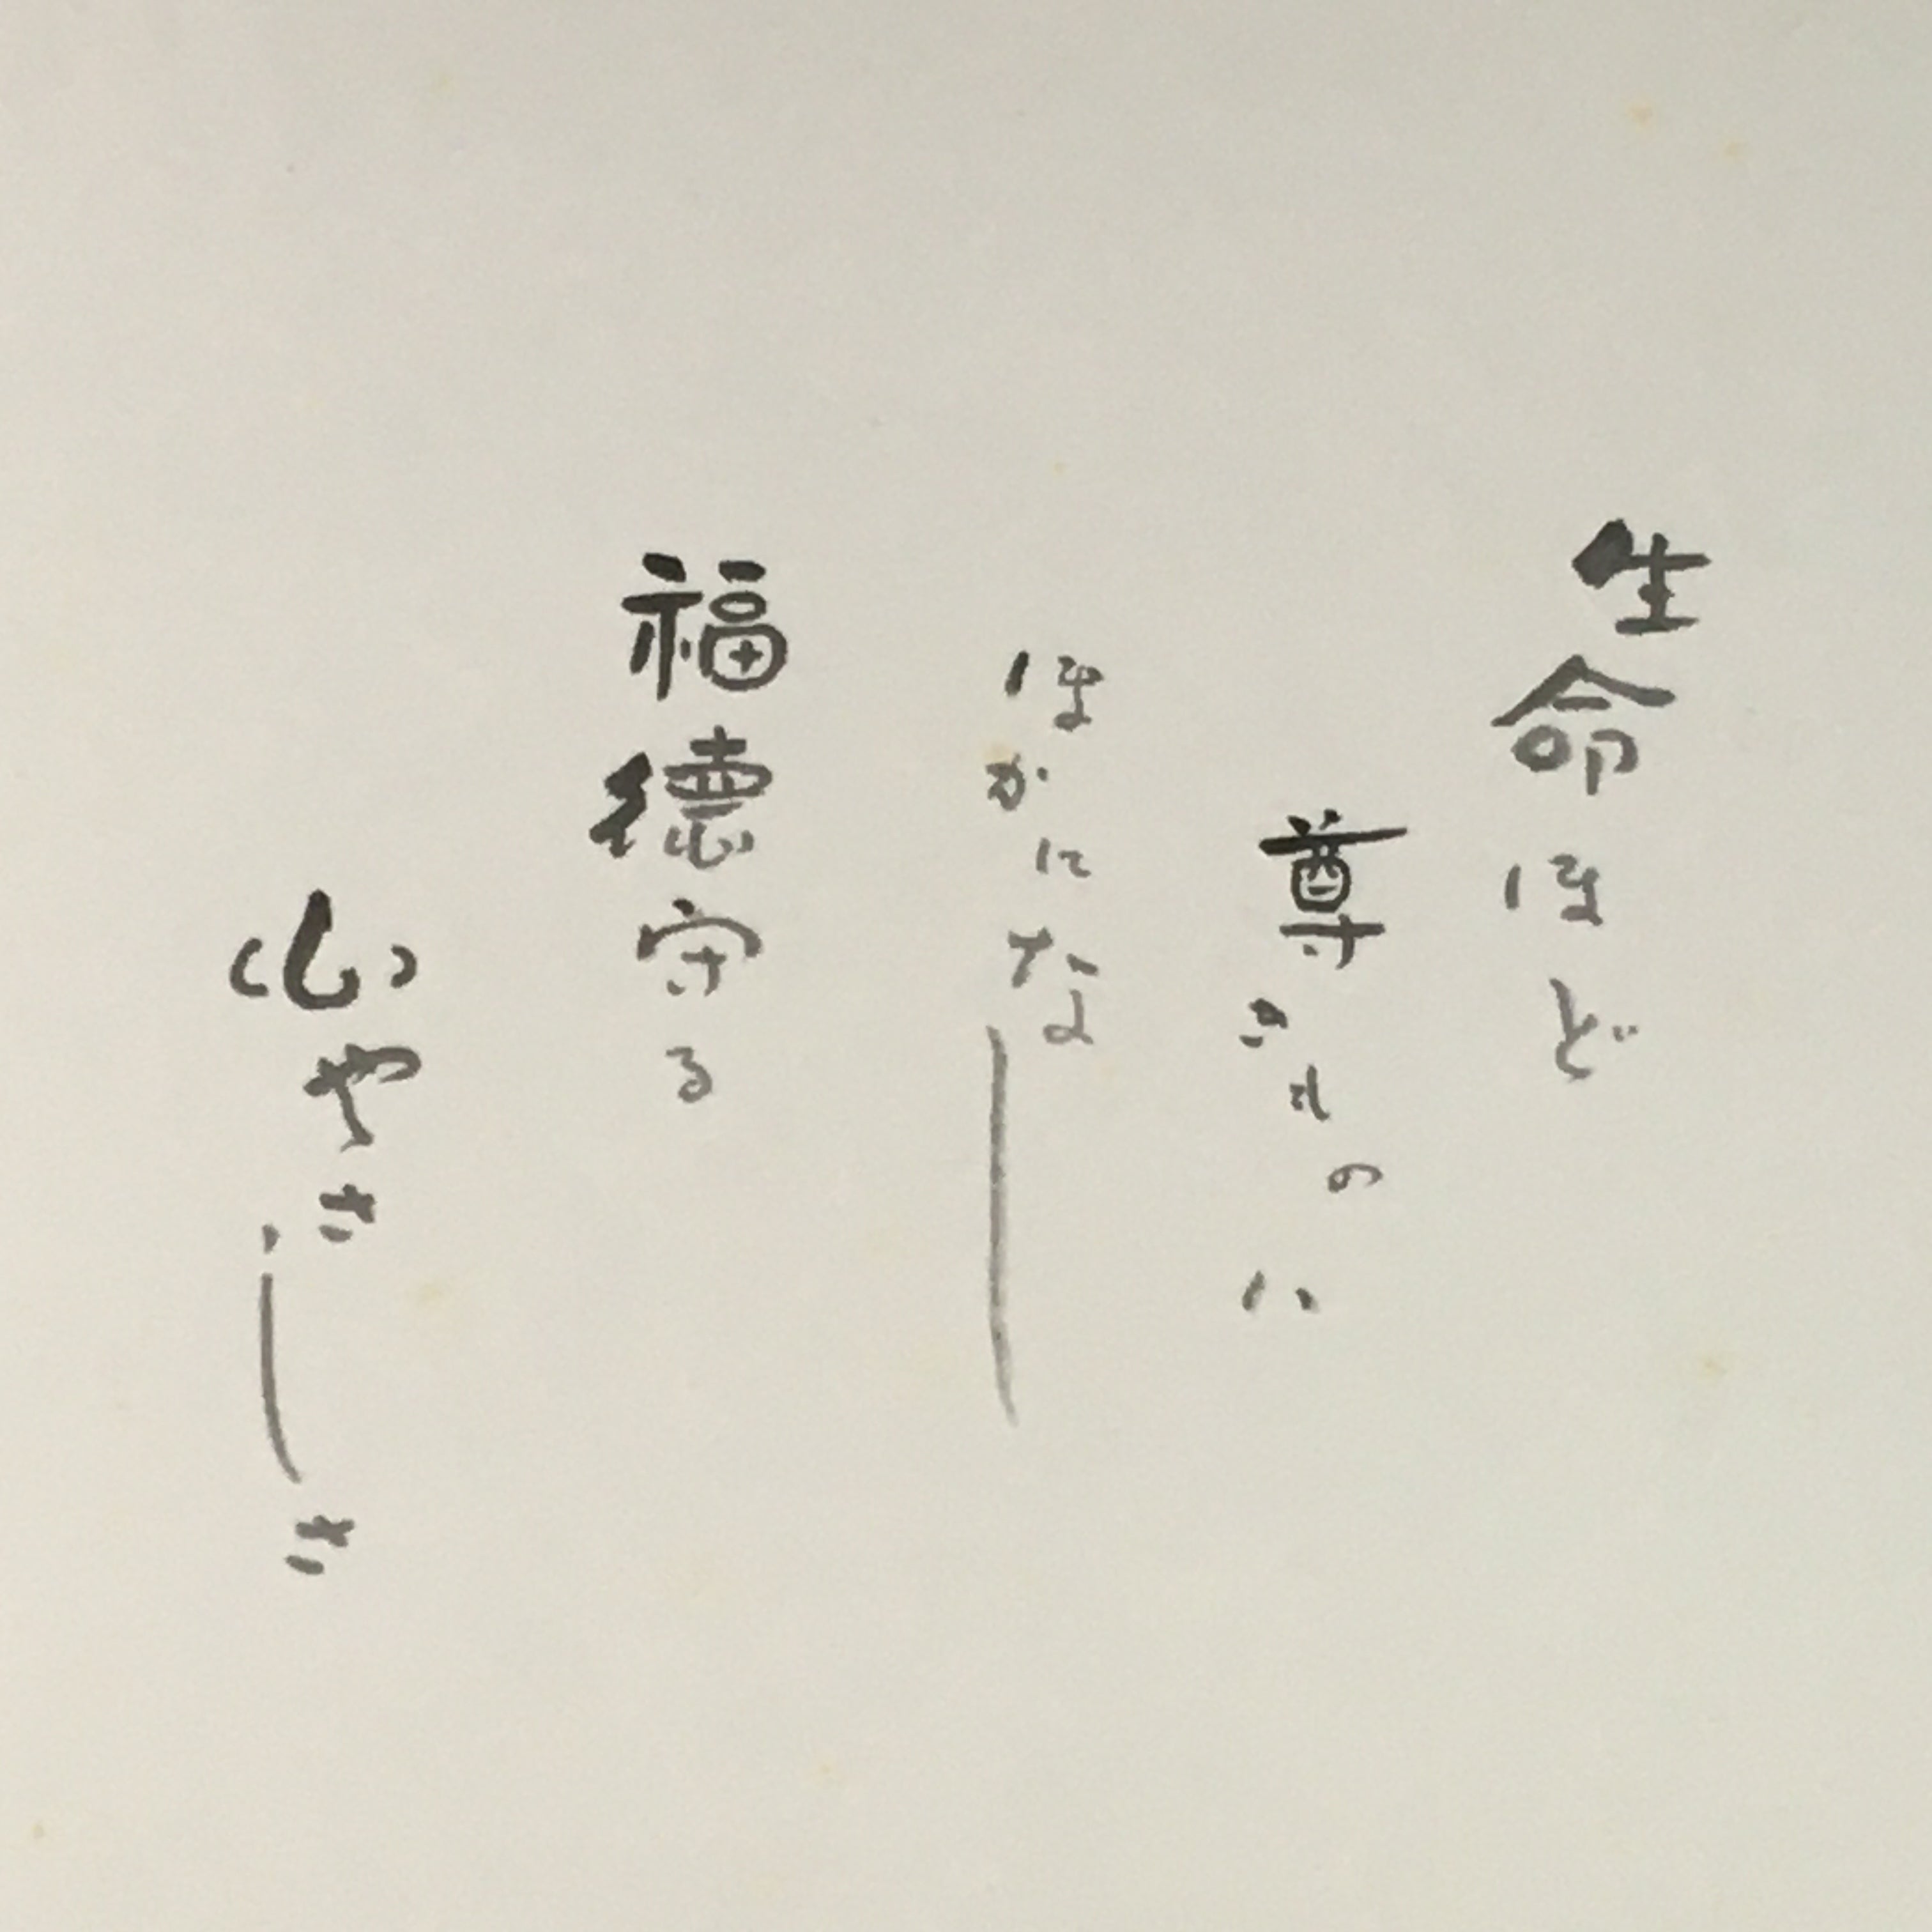 生命ほど
尊きものハ
ほかになし
福徳守る
心やさしき